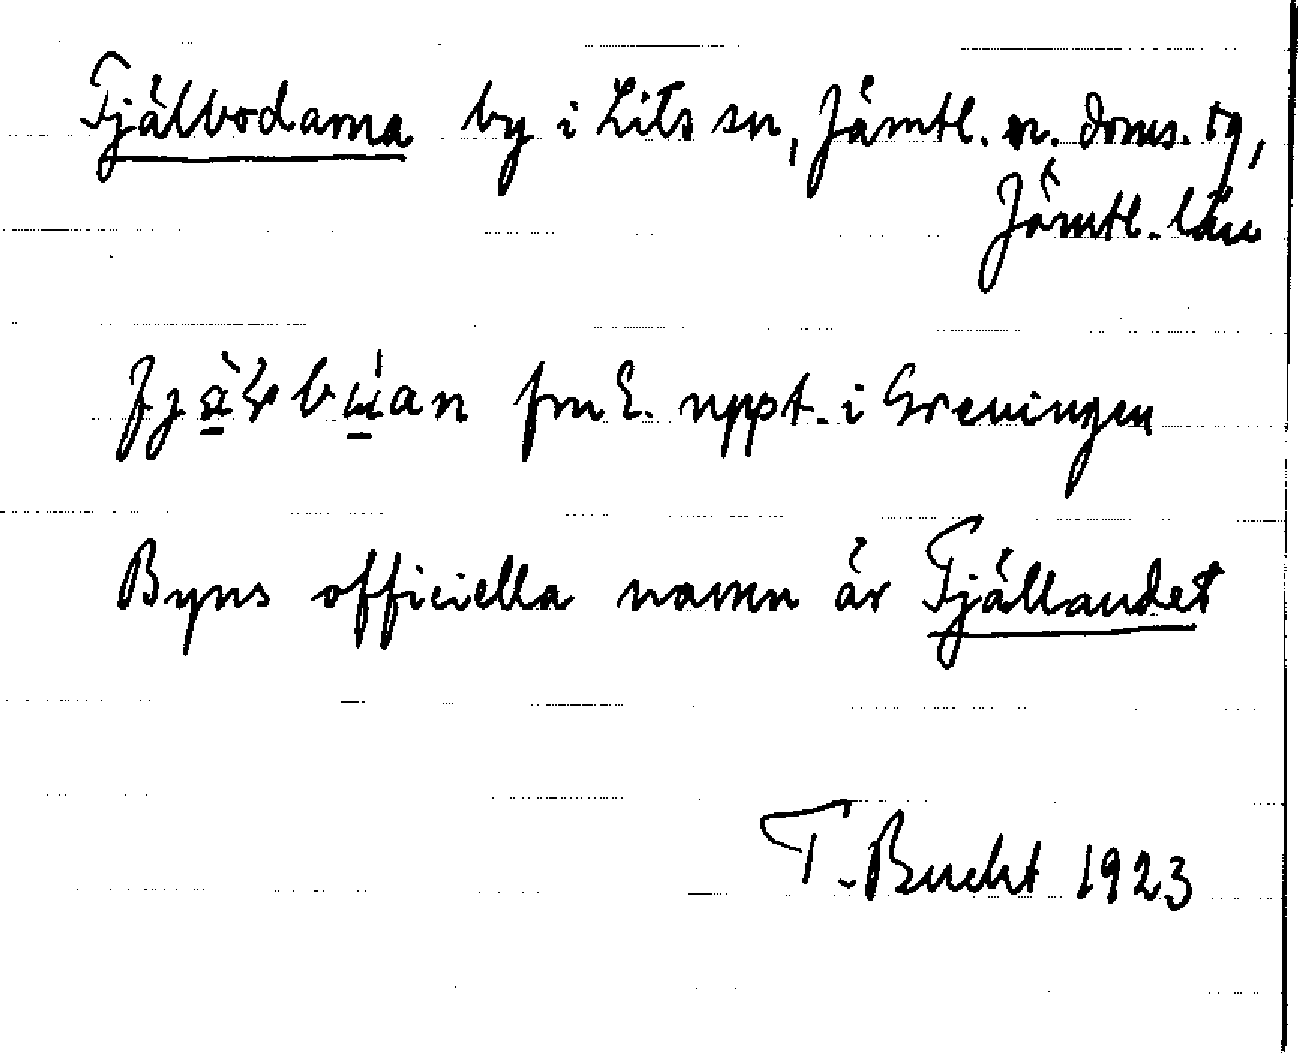 Fjälbodarna by i Lits sn, Jämtl. n. doms. tg,
Jämtl. län
fm E. uppt. i Greningen
Byns officiella namn är Fjällandet
T. Bucht 1923